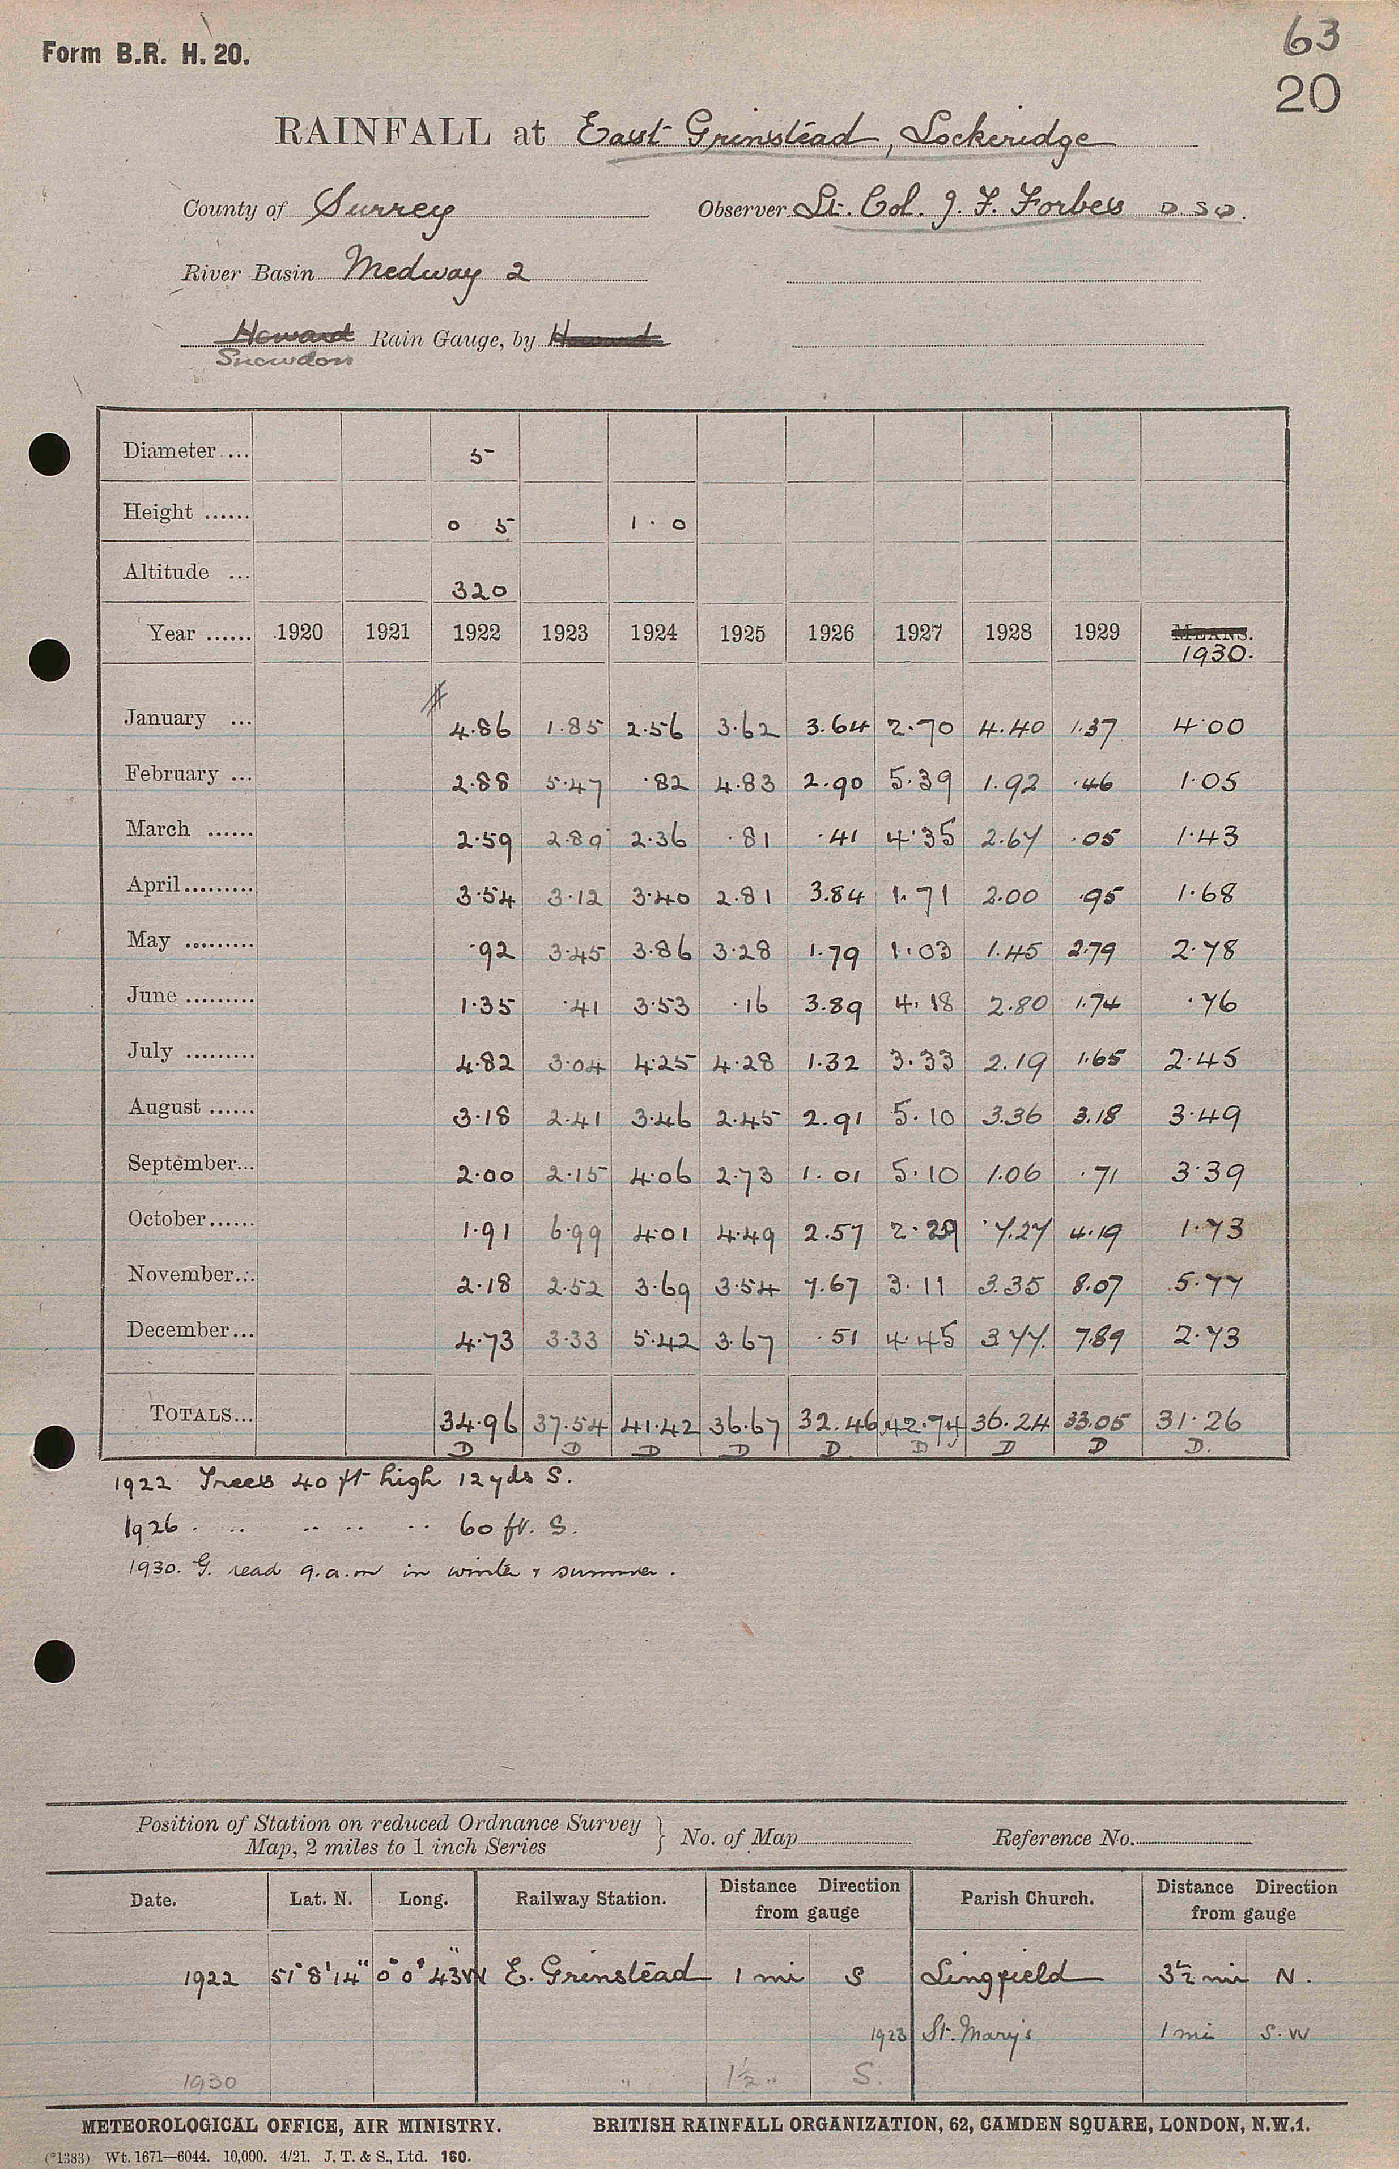 Form B.R. H. 20.
63
20
RAINFALL at East Grinstead, Lockeridge
County of Surrey Observer Lt. Col. J. F. Forbes D S O.
River Basin Medway 2
Howard Rain Gauge, by Howard
Snowdon
Diameter .... 5
Height ...... 0 5 1 . 0
Altitude ... 320
Year ...... 1920 1921 1922 1923 1924 1925 1926 1927 1928 1929 MEANS.
1930.
January ... 4.86 1.85 2.56 3.62 3.64 2.70 4.40 1.37 4.00
February ... 2.88 5.47 .82 4.83 2.90 5.39 1.92 .46 1.05
March ...... 2.59 2.89 2.36 .81 .41 4.35 2.67 .05 1.43
April......... 3.54 3.12 3.40 2.81 3.84 1.71 2.00 .95 1.68
May ......... .92 3.45 3.86 3.28 1.79 1.03 1.45 2.79 2.78
June ......... 1.35 .41 3.53 .16 3.89 4.18 2.80 1.74 .76
July ......... 4.82 3.04 4.25 4.28 1.32 3.33 2.19 1.65 2.45
August ...... 3.18 2.41 3.46 2.45 2.91 5.10 3.36 3.18 3.49
September... 2.00 2.15 4.06 2.73 1.01 5.10 1.06 .71 3.39
October...... 1.91 6.99 4.01 4.49 2.57 2.29 7.27 4.19 1.73
November... 2.18 2.52 3.69 3.54 7.67 3.11 3.35 8.07 5.77
December... 4.73 3.33 5.42 3.67 .51 4.45 3.77 7.89 2.73
TOTALS... 34.96 37.54 41.42 36.67 32.46 42.74 36.24 33.05 31.26
D D D D D D D D D.
1922 Trees 40 ft high 12 yds S.
1926 . .. .. .. .. 60 ft. S.
1930. G. read 9.a.m in winter & summer.
Position of Station on reduced Ordnance Survey
Map, 2 miles to 1 inch Series } No. of Map Reference No.
Date. Lat. N. Long. Railway Station. Distance Direction from gauge Parish Church. Distance Direction from gauge
1922 51° 8' 14" 0° 0' 43" W E. Grinstead 1 mi S Lingfield 3½ mi N.
1923 St. Mary's 1 mi S. W
1930 " 1½ " S.
METEOROLOGICAL OFFICE, AIR MINISTRY. BRITISH RAINFALL ORGANIZATION, 62, CAMDEN SQUARE, LONDON, N.W.1.
(*1383) Wt. 1671—6044. 10,000. 4/21. J. T. & S., Ltd. 160.